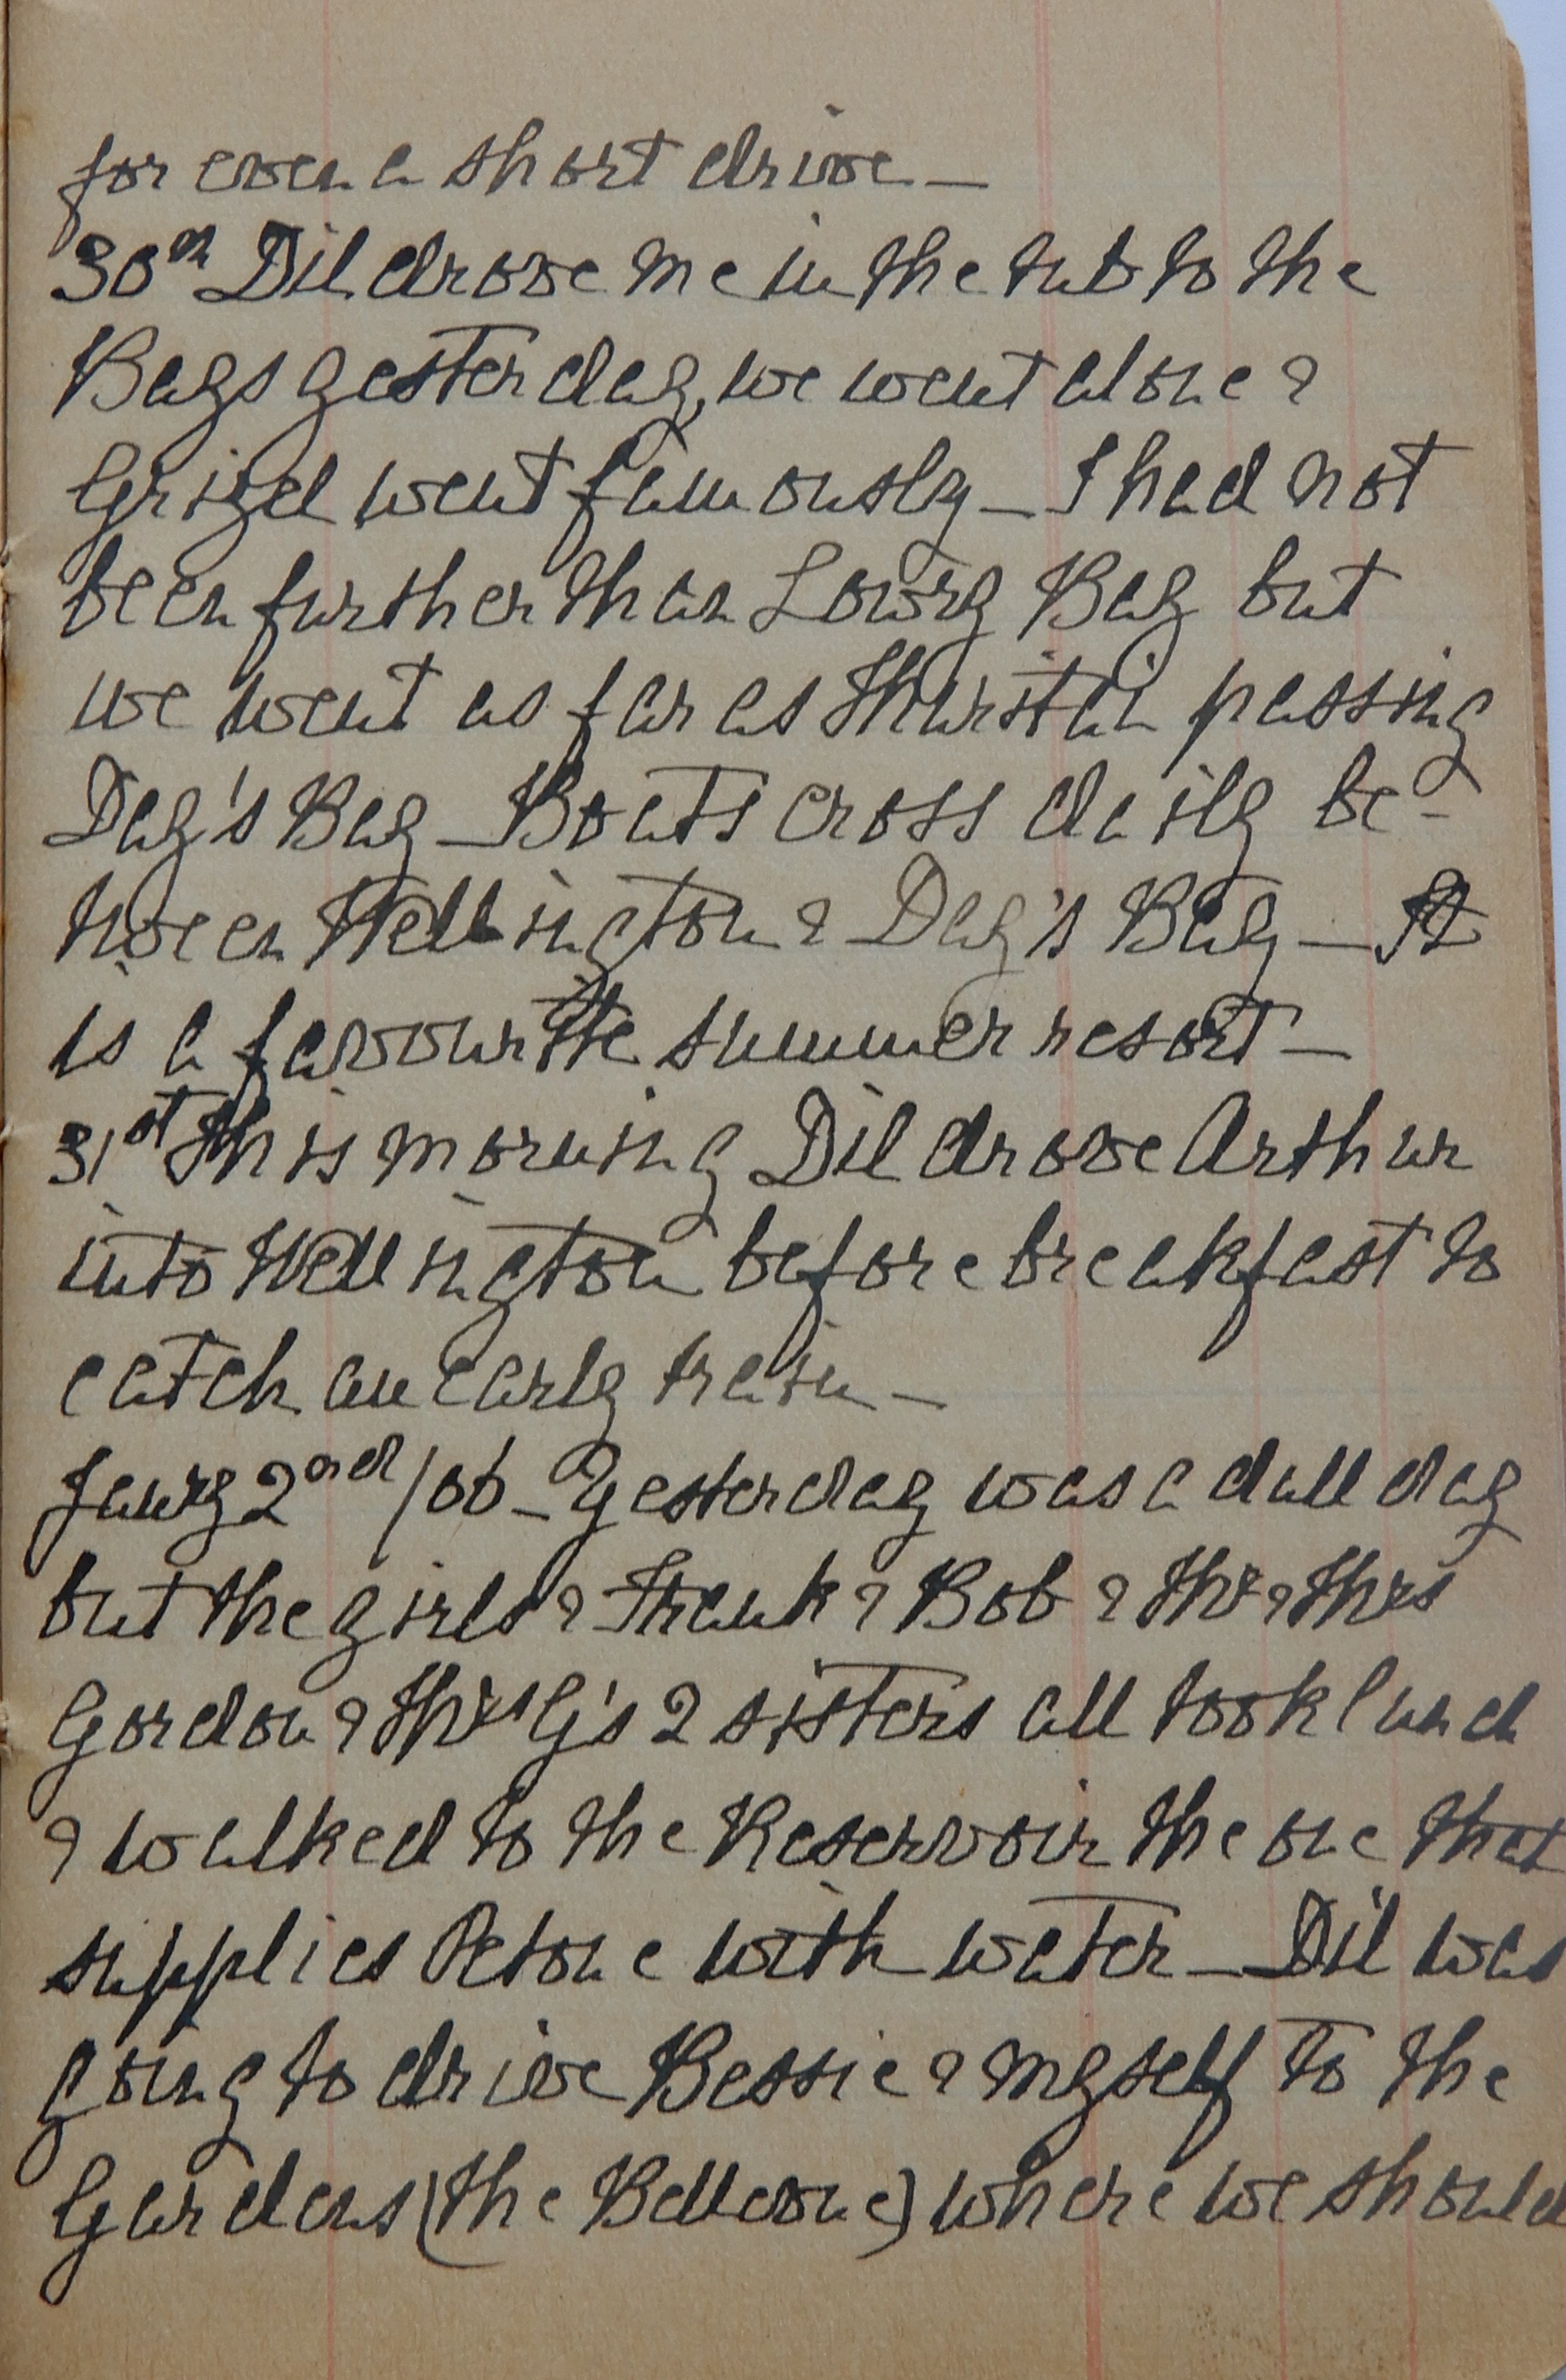 for even a short drive –
30th Dil drove me in the tub to the
Bays yesterday, we went alone &
Grizel went famously – I had not
been further than Lowry Bay but
we went as far as Muritai passing
Day's Bay – Boats cross daily be-
tween Wellington & Day's Bay – It
is a favourite summer resort –
31st This morning Dil drove Arthur
into Wellington before breakfast to
catch an early train –
Janry 2nd /06 – Yesterday was a dull day
but the girls & Frank & Bob & Mr & Mrs
Gordon & Mrs G's 2 sisters all took lunch
& walked to the Reservoir the one that
supplies Petone with water – Dil was
going to drive Bessie & myself to the
Gardens (the Bellevue) where we should